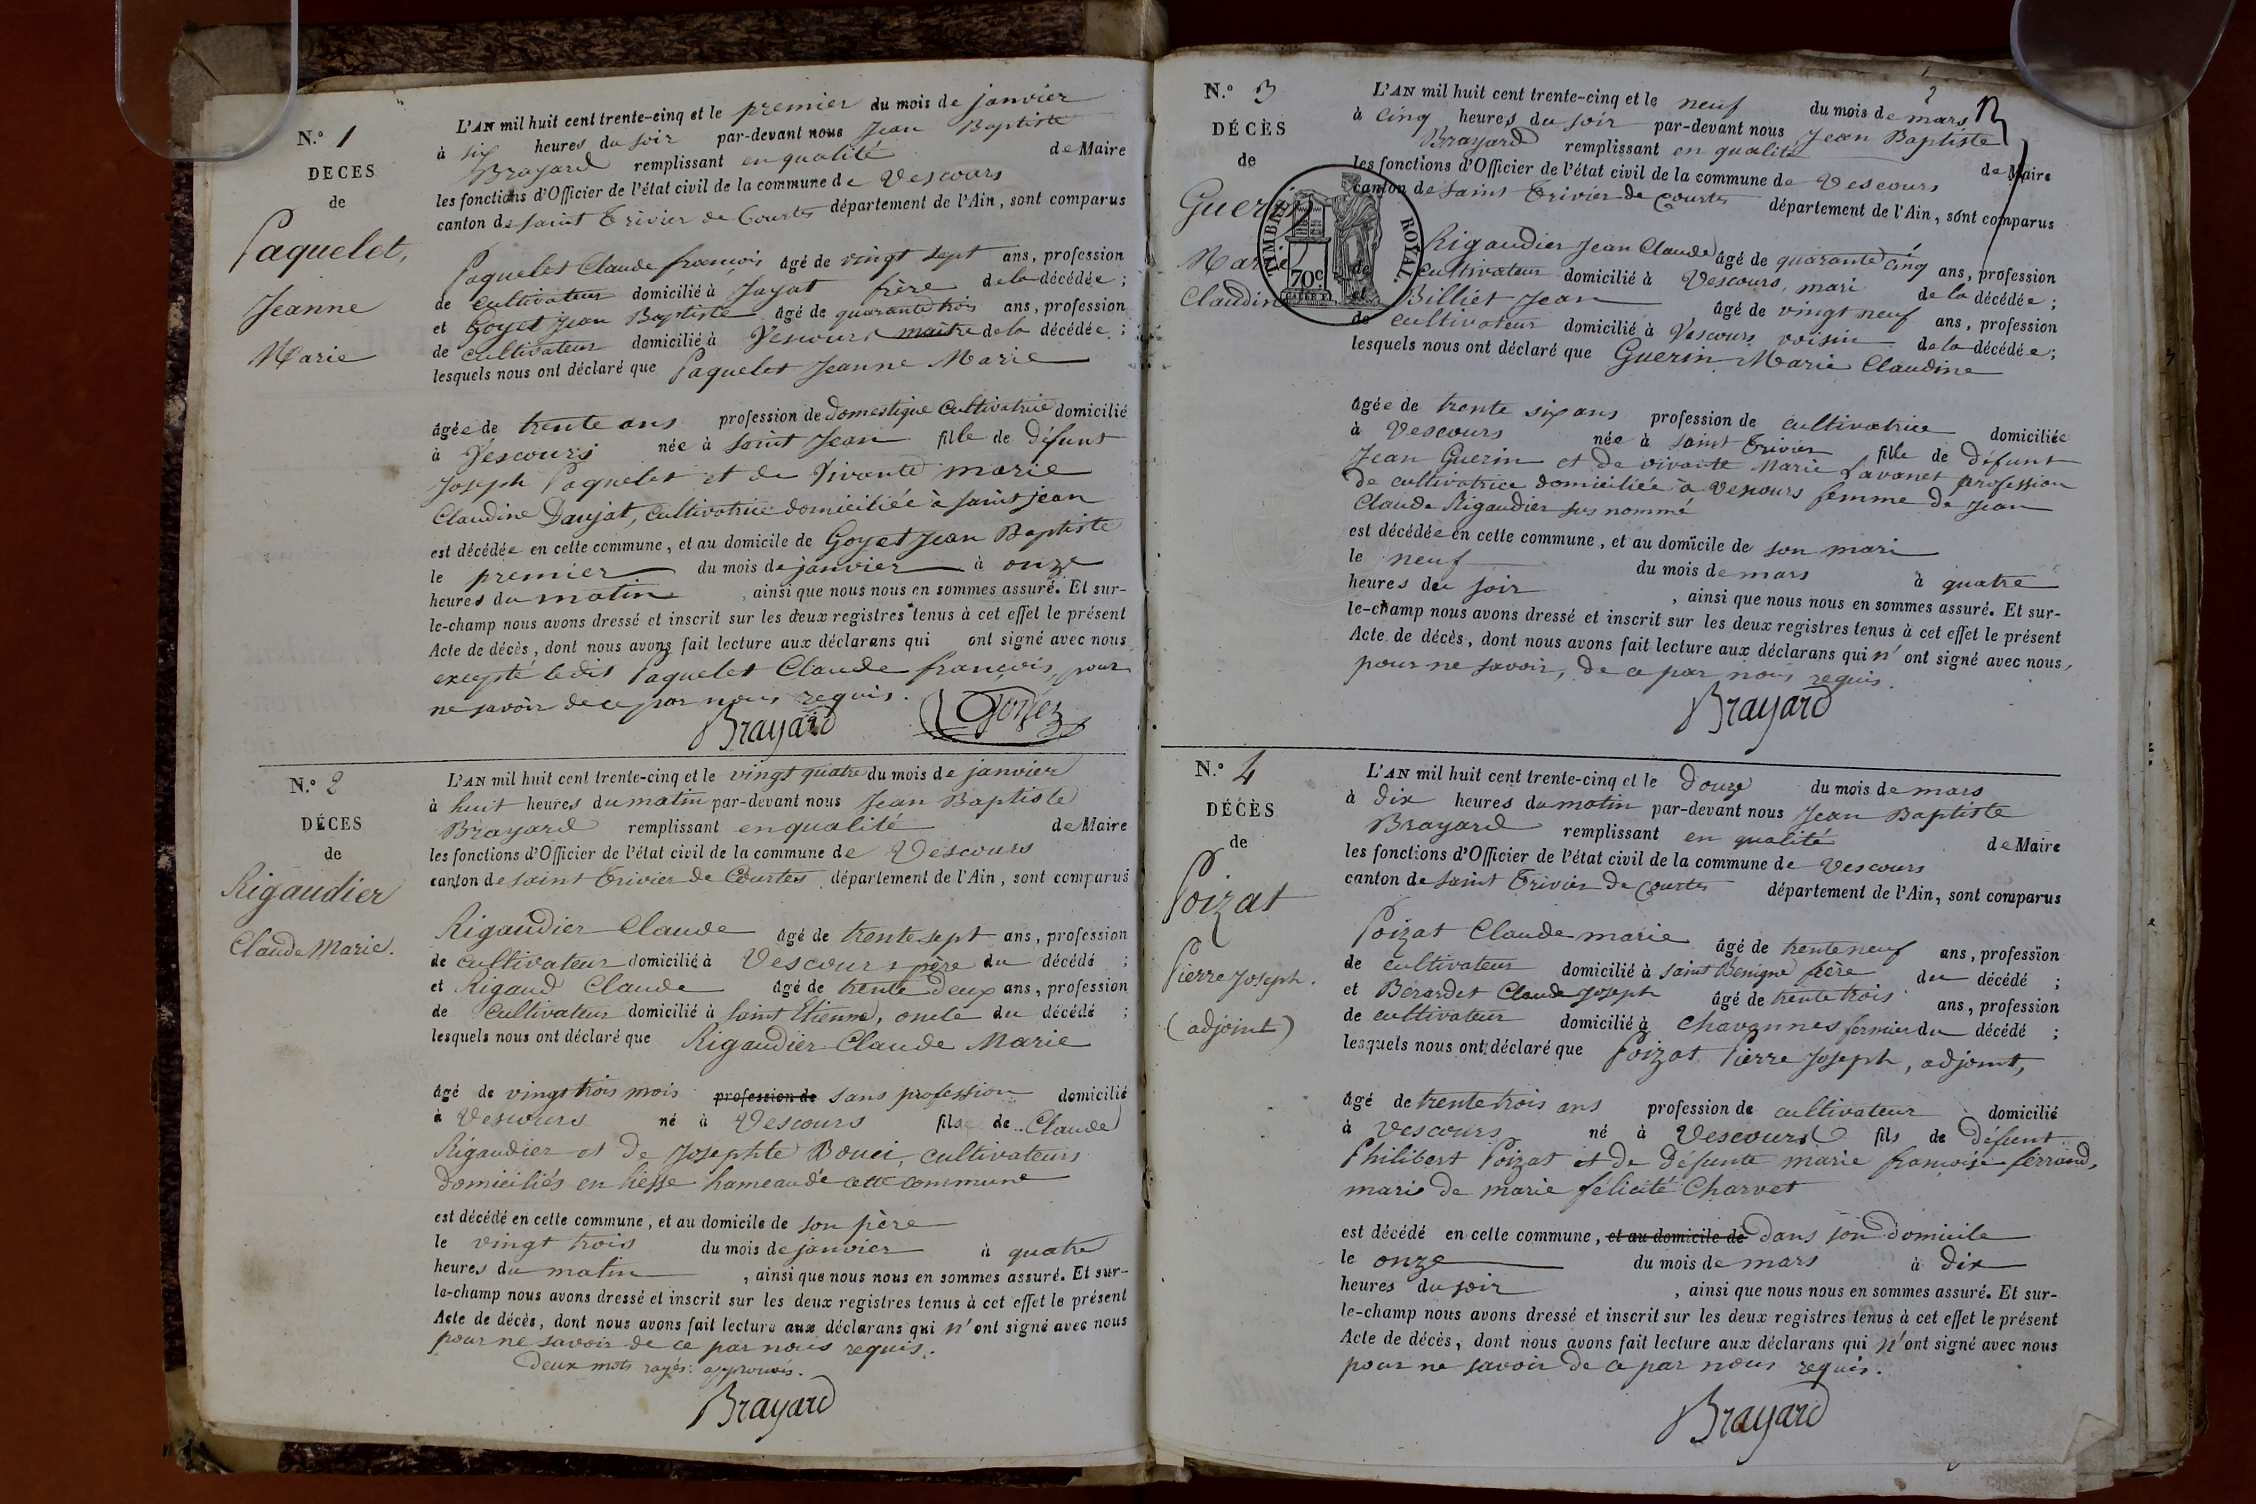 N.º 1
DÉCÈS
de
Paquelet,
Jeanne
Marie
L'AN mil huit cent trente-cinq et le premier du mois de janvier
à six heures du soir par-devant nous Jean Baptiste
Brayard remplissant en qualité de Maire
les fonctions d'Officier de l'état civil de la commune de Vescours
canton de saint Trivier de Courtes département de l'Ain, sont comparus
Paquelet Claude françois âgé de vingt sept ans, profession
de cultivateur domicilié à Jayat frère de la décédée ;
et Goyet Jean Baptiste âgé de quarante trois ans, profession
de cultivateur domicilié à Vescours maitre de la décédée ;
lesquels nous ont déclaré que Paquelet Jeanne Marie
âgée de trente ans profession de domestique Cultivatrice domicilié
à Vescours née à Saint Jean fille de défunt
Joseph Paquelet et de Vivante marie
Claudine Daujat, cultivatrice domiciliée à saint jean
est décédée en cette commune, et au domicile de Goyet Jean Baptiste
le premier du mois de janvier à onze
heures du matin , ainsi que nous nous en sommes assuré. Et sur-
le-champ nous avons dressé et inscrit sur les deux registres tenus à cet effet le présent
Acte de décès, dont nous avons fait lecture aux déclarans qui ont signé avec nous
excepté ledit Paquelet Claude françois, pour
ne savoir de ce par nous requis.
Brayard Goyet
N.º 2
DÉCES
de
Rigaudier
Claude Marie.
L'AN mil huit cent trente-cinq et le vingt quatre du mois de janvier
à huit heures du matin par-devant nous Jean Baptiste
Brayard remplissant en qualité de Maire
les fonctions d'Officier de l'état civil de la commune de Vescours
canton de saint Trivier de Courtes département de l'Ain, sont comparus
Rigaudier Claude âgé de trente sept ans, profession
de cultivateur domicilié à Vescours père du décédé ;
et Rigaud Claude âgé de trente deux ans, profession
de cultivateur domicilié à Saint Etienne, oncle du décédé ;
lesquels nous ont déclaré que Rigaudier Claude Marie
âgé de vingt trois mois profession de sans profession domicilié
à Vescours né à Vescours fils de Claude
Rigaudier et de Josephte Bouci, cultivateurs
domiciliés en hesse hameau de cette commune
est décédé en cette commune, et au domicile de son père
le vingt trois du mois de janvier à quatre
heures du matin , ainsi que nous nous en sommes assuré. Et sur-
le-champ nous avons dressé et inscrit sur les deux registres tenus à cet effet le présent
Acte de décès, dont nous avons fait lecture aux déclarans qui n'ont signé avec nous
pour ne savoir de ce par nous requis.
deux mots rayés: approuvés.
Brayard
2
N.º 3
DÉCÈS
de
Guerin
Marie
Claudine
TIMBRE ROYAL
70c
L'AN mil huit cent trente-cinq et le neuf du mois de mars
à cinq heures du soir par-devant nous Jean Baptiste
Brayard remplissant en qualité de Maire
les fonctions d'Officier de l'état civil de la commune de Vescours
canton de saint Trivier de Courtes département de l'Ain, sont comparus
Rigaudier Jean Claude âgé de quarante cinq ans, profession
de cultivateur domicilié à Vescours, mari de la décédée ;
et Billiet Jean âgé de vingt neuf ans, profession
de cultivateur domicilié à Vescours voisin de la décédée ;
lesquels nous ont déclaré que Guerin Marie Claudine
âgée de trente six ans profession de cultivatrice domiciliée
à Vescours née à saint Trivier fille de défunt
Jean Guerin et de vivante Marie Lavanet profession
de cultivatrice domiciliée à Vescours femme de Jean
Claude Rigaudier sus nommé
est décédée en cette commune, et au domicile de son mari
le neuf du mois de mars à quatre
heures du soir , ainsi que nous nous en sommes assuré. Et sur-
le-champ nous avons dressé et inscrit sur les deux registres tenus à cet effet le présent
Acte de décès, dont nous avons fait lecture aux déclarans qui n'ont signé avec nous,
pour ne savoir, de ce par nous requis.
Brayard
N.º 4
DÉCÈS
de
Poizat
Pierre Joseph.
(adjoint)
L'AN mil huit cent trente-cinq et le douze du mois de mars
à dix heures du matin par-devant nous Jean Baptiste
Brayard remplissant en qualité de Maire
les fonctions d'Officier de l'état civil de la commune de Vescours
canton de saint Trivier de Courtes département de l'Ain, sont comparus
Poizat Claude marie âgé de trente neuf ans, profession
de cultivateur domicilié à saint Benigne frère du décédé ;
et Berardet Claude Joseph âgé de trente trois ans, profession
de cultivateur domicilié à Chavannes fermier du décédé ;
lesquels nous ont déclaré que Poizat Pierre Joseph, adjoint,
âgé de trente trois ans profession de cultivateur domicilié
à Vescours né à Vescours fils de défunt
Philibert Poizat et de défunte marie françoise ferrand,
mari de marie félicité Charvet
est décédé en cette commune, et au domicile de dans son domicile
le onze du mois de mars à dix
heures du soir , ainsi que nous nous en sommes assuré. Et sur-
le-champ nous avons dressé et inscrit sur les deux registres tenus à cet effet le présent
Acte de décès, dont nous avons fait lecture aux déclarans qui n'ont signé avec nous
pour ne savoir de ce par nous requis.
Brayard